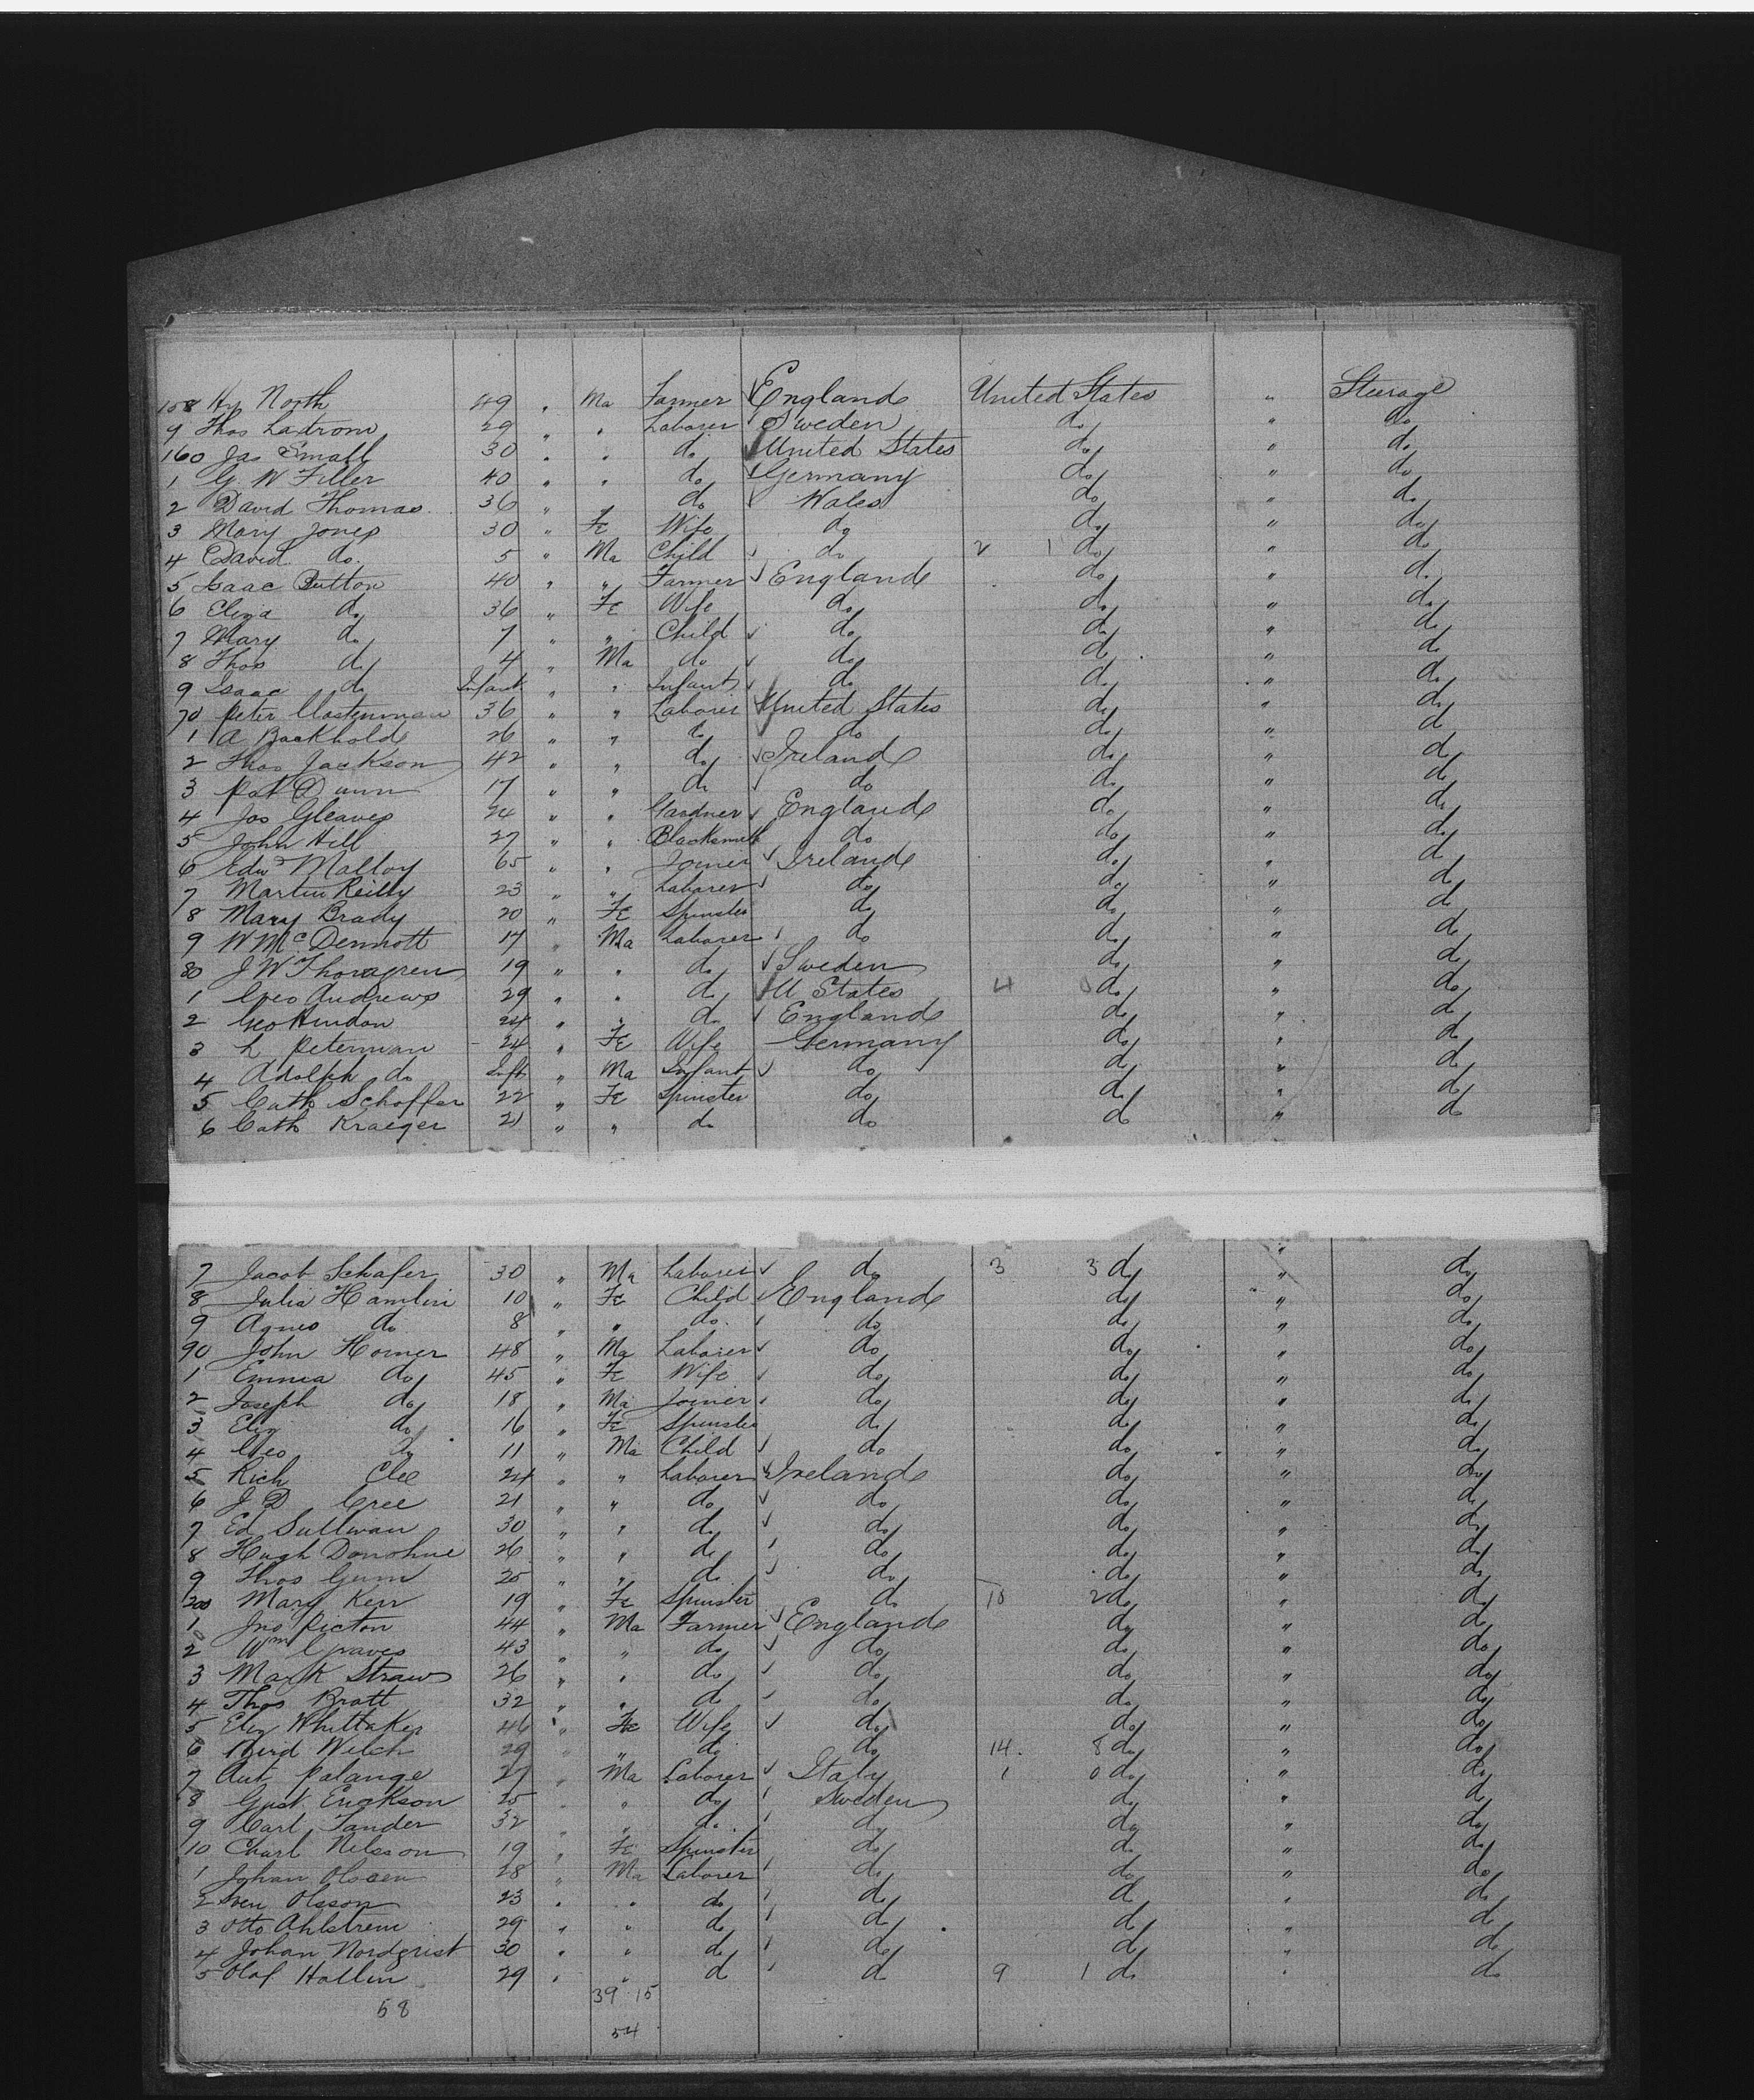 158 Hy North 49 " Ma Farmer England United States " Steerage
9 Thos Laxtrom 29 " " Laborer Sweden do " do
160 Jas Small 30 " " do United States do " do
1 G. W Filler 40 " " do Germany do " do
2 David Thomas 36 " " do Wales do " do
3 Mary Jones 30 " Fe Wife do do " do
4 David do. 5 " Ma Child do 2 1 do " do
5 Isaac Button 40 " " Farmer England do " do
6 Eliza do 36 " Fe Wife do do " do
7 Mary do 7 " " Child do do " do
8 Thos do 4 " Ma do do do " do
9 Isaac do Infant " " Infant do do " do
70 Peter 36 " " Laborer United States do " do
1 A Backhold 26 " " do do do " do
2 Thos Jackson 42 " " do Ireland do " do
3 Pat Dunn 17 " " do do do " do
4 Jos Gleaves 24 " " Gardner England do " do
5 John Hill 27 " " Blacksmith do do " do
6 Edwd Malloy 65 " " Joiner Ireland do " do
7 Martin Reilly 23 " " Laborer do do " do
8 Mary Brady 20 " Fe Spinster do do " do
9 W McDermott 17 " Ma Laborer do do " do
80 J W Thoragren 19 " " do Sweden do " do
1 Geo Andrews 29 " " do U States 4 0 do " do
2 Geo Hindon 24 " " do England do " do
3 L Peterman 24 " Fe Wife Germany do " do
4 Adolph do Inft " Ma Infant do do " do
5 Cath Schoffer 22 " Fe Spinster do do " do
6 Cath Kraeger 21 " " do do do " do
7 Jacob Schafer 30 " Ma Laborer do 3 3 do " do
8 Julia Hamlin 10 " Fe Child England do " do
9 Agnes do 8 " " do do do " do
90 John Horner 48 " Ma Laborer do do " do
1 Emma do 45 " Fe Wife do do " do
2 Joseph do 18 " Ma Joiner do do " do
3 Eliz do 16 " Fe Spinster do do " do
4 Geo do 11 " Ma Child do do " do
5 Rich Clee 24 " " Laborer Ireland do " do
6 J D Cree 21 " " do do do " do
7 Ed Sullivan 30 " " do do do " do
8 Hugh Donohue 26 " " do do do " do
9 Thos Gunn 25 " " do do do " do
200 Mary Kerr 19 " Fe Spinster do 10 2 do " do
1 Jno Picton 44 " Ma Farmer England do " do
2 Wm Graves 43 " " do do do " do
3 Mark Straws 26 " " do do do " do
4 Thos Bratt 32 " " do do do " do
5 Eliz Whittaker 46 " Fe Wife do do " do
6 Welch 29 " " do do 14. 8 do " do
7 Ant Palange 27 " Ma Laborer Italy 1 0 do " do
8 Gust Erickson 25 " " do Sweden do " do
9 Carl Tander 32 " " do do do " do
10 Charl Nilsson 19 " Fe Spinster do do " do
1 Johan Olssen 28 " Ma Laborer do do " do
2 Sven Olsson 23 " " do do do " do
3 Otto Ahlstrem 29 " " do do do " do
4 Johan Nordqrist 30 " " do do do " do
5 Olaf Hallin 29 " " do do 9 1 do " do
58 39 15
54